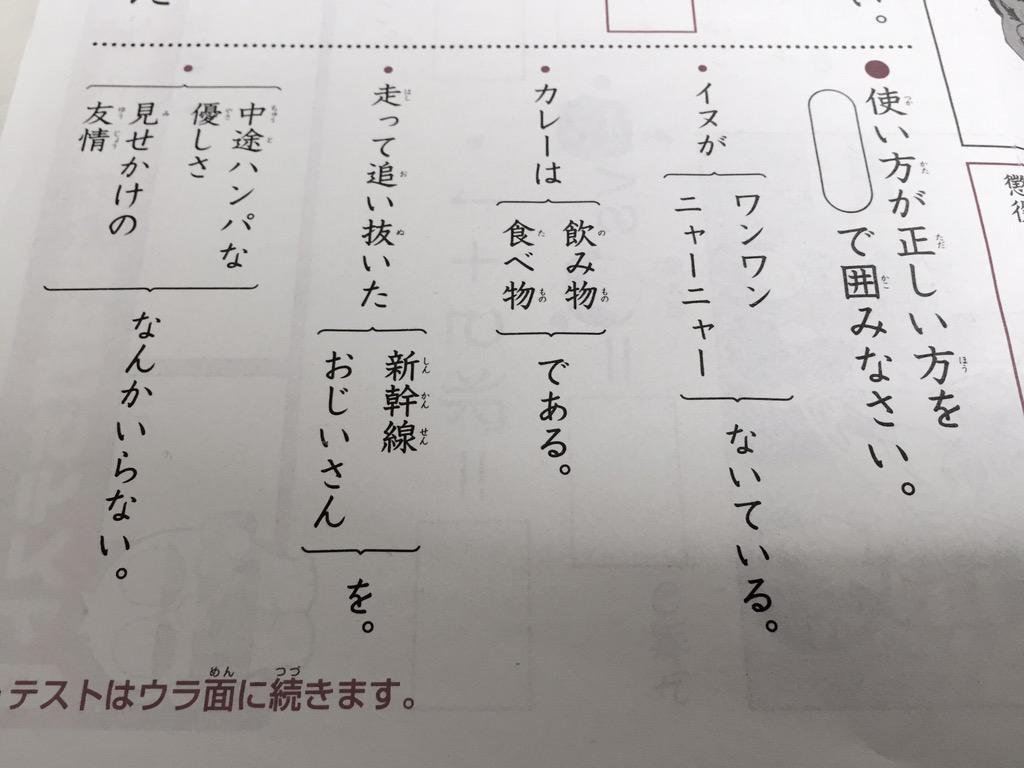 懲役
い。
使い方が正しい方を
で囲みなさい。
イヌが
ワンワン
ニャーニャー
ないている。
カレーは
飲み物
食べ物
である。
走って追い抜いた
新幹線
おじいさん
を。
中途ハンパな
優しさ
見せかけの
友情
なんかいらない。
テストはウラ面に続きます。